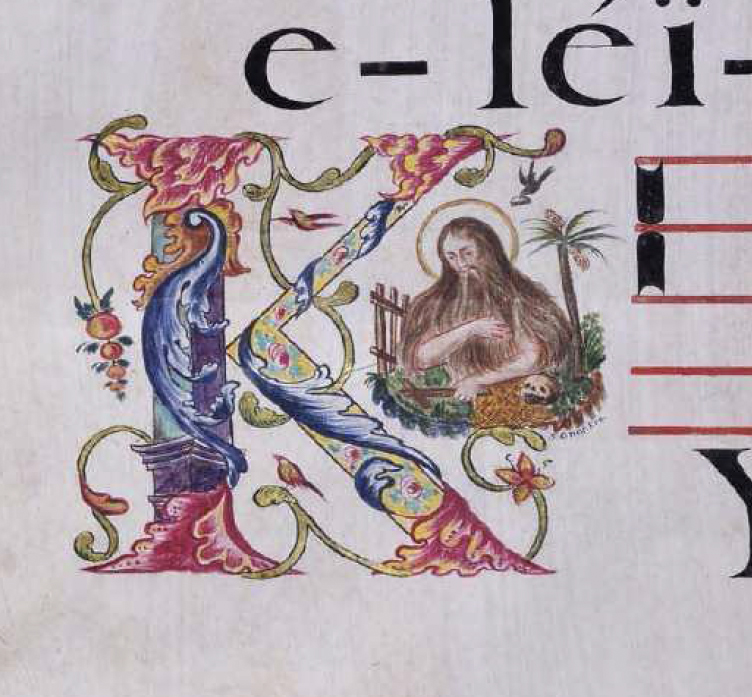 e- léï-
K
Y